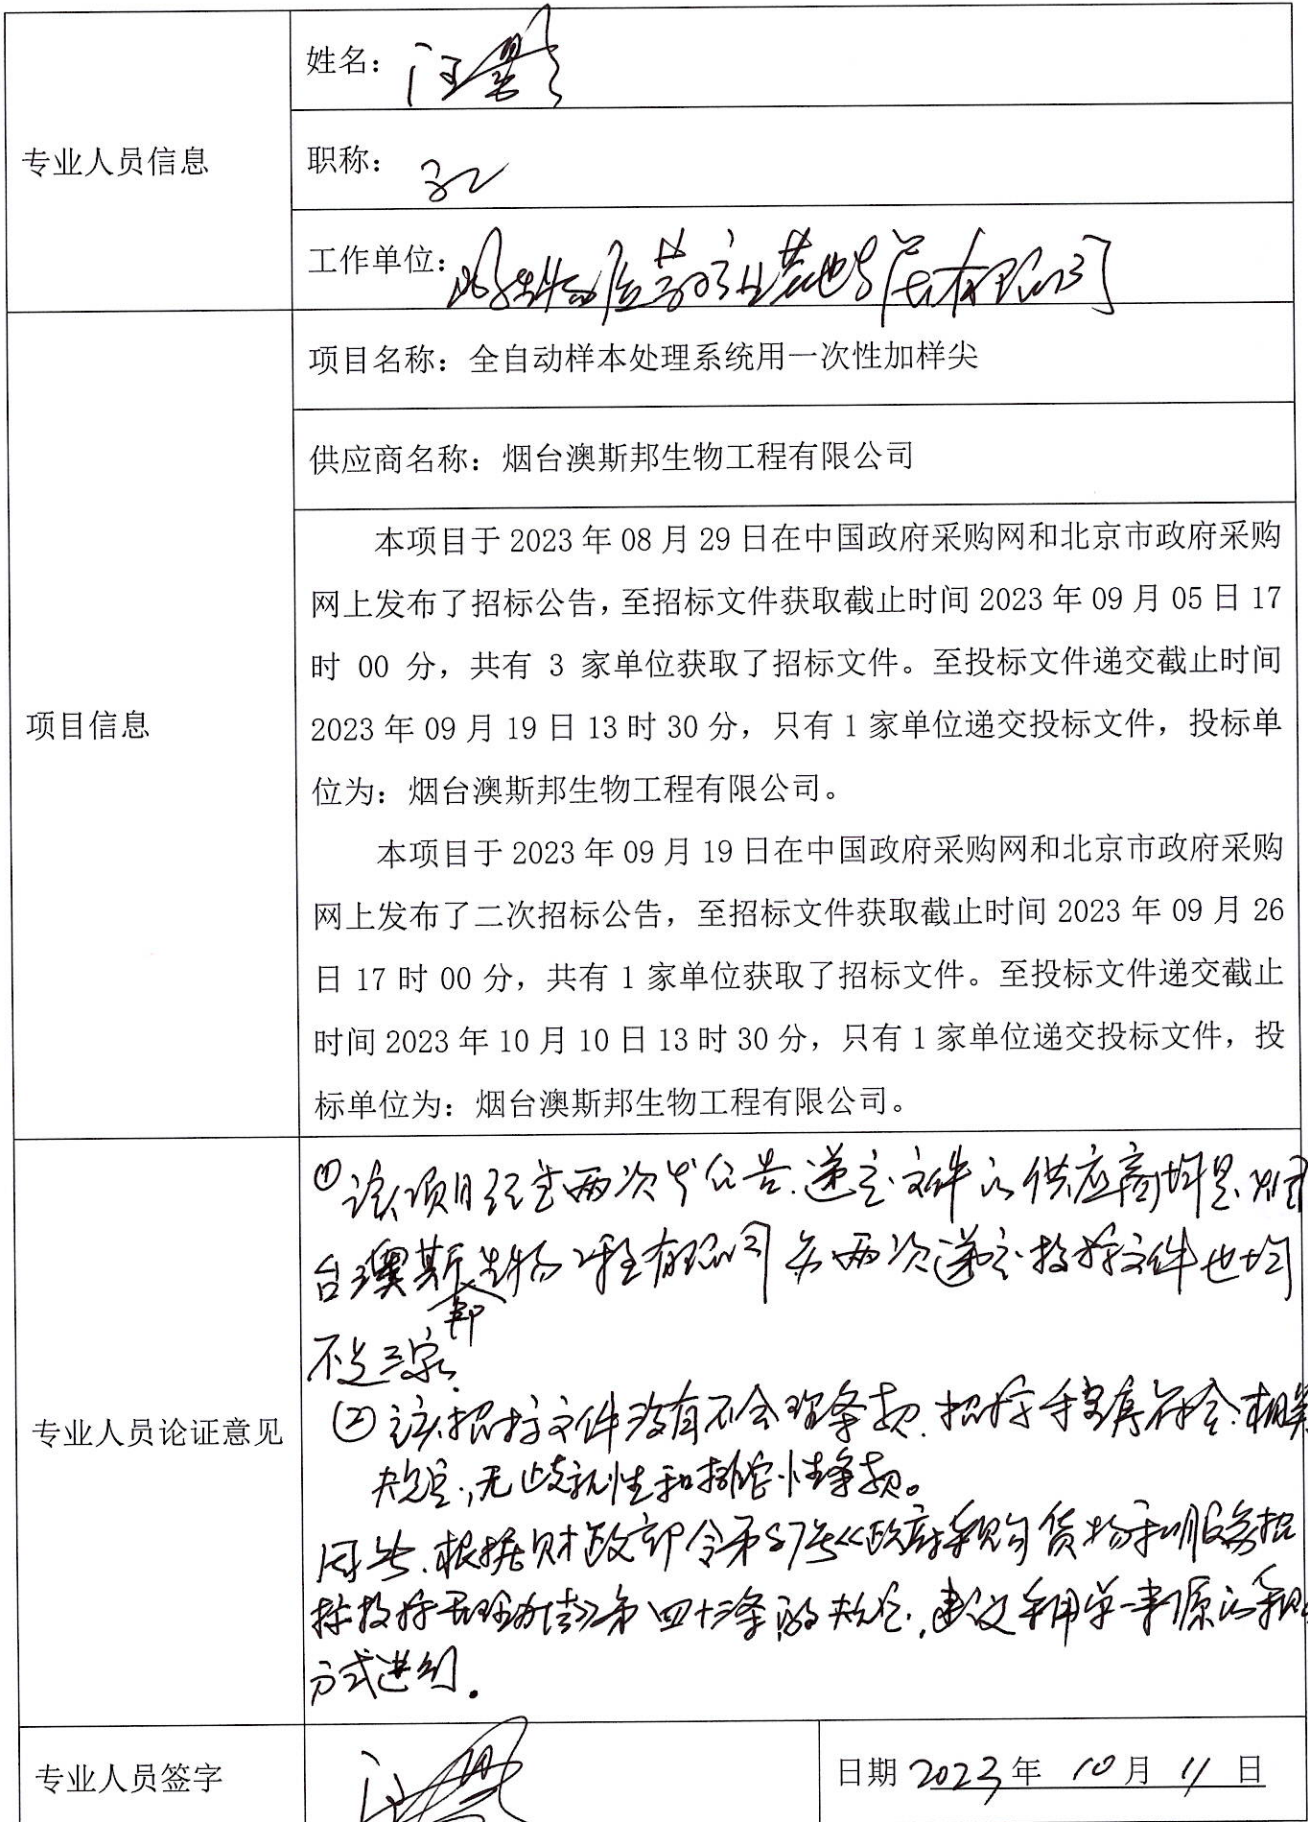 专业人员信息
姓名：汪
职称：高工
工作单位：生物医药产业基地发展有限公司
项目信息
项目名称：全自动样本处理系统用一次性加样尖
供应商名称：烟台澳斯邦生物工程有限公司
本项目于 2023 年 08 月 29 日在中国政府采购网和北京市政府采购
网上发布了招标公告，至招标文件获取截止时间 2023 年 09 月 05 日 17
时 00 分，共有 3 家单位获取了招标文件。至投标文件递交截止时间
2023 年 09 月 19 日 13 时 30 分，只有 1 家单位递交投标文件，投标单
位为：烟台澳斯邦生物工程有限公司。
本项目于 2023 年 09 月 19 日在中国政府采购网和北京市政府采购
网上发布了二次招标公告，至招标文件获取截止时间 2023 年 09 月 26
日 17 时 00 分，共有 1 家单位获取了招标文件。至投标文件递交截止
时间 2023 年 10 月 10 日 13 时 30 分，只有 1 家单位递交投标文件，投
标单位为：烟台澳斯邦生物工程有限公司。
专业人员论证意见
①该项目经过两次发公告.递交文件的供应商均是烟
台澳斯邦生物工程有限公司 两次递交投标文件也均
不足三家.
②该招标文件没有不合理条款.招标程序符合相关
规定,无歧视性和排他性条款。
因此.根据财政部令第87号《政府采购货物和服务招
标投标管理办法》第四十三条的规定,建议采用单一来源的采购
方式进行.
专业人员签字
汪
日期 2023 年 10 月 11 日